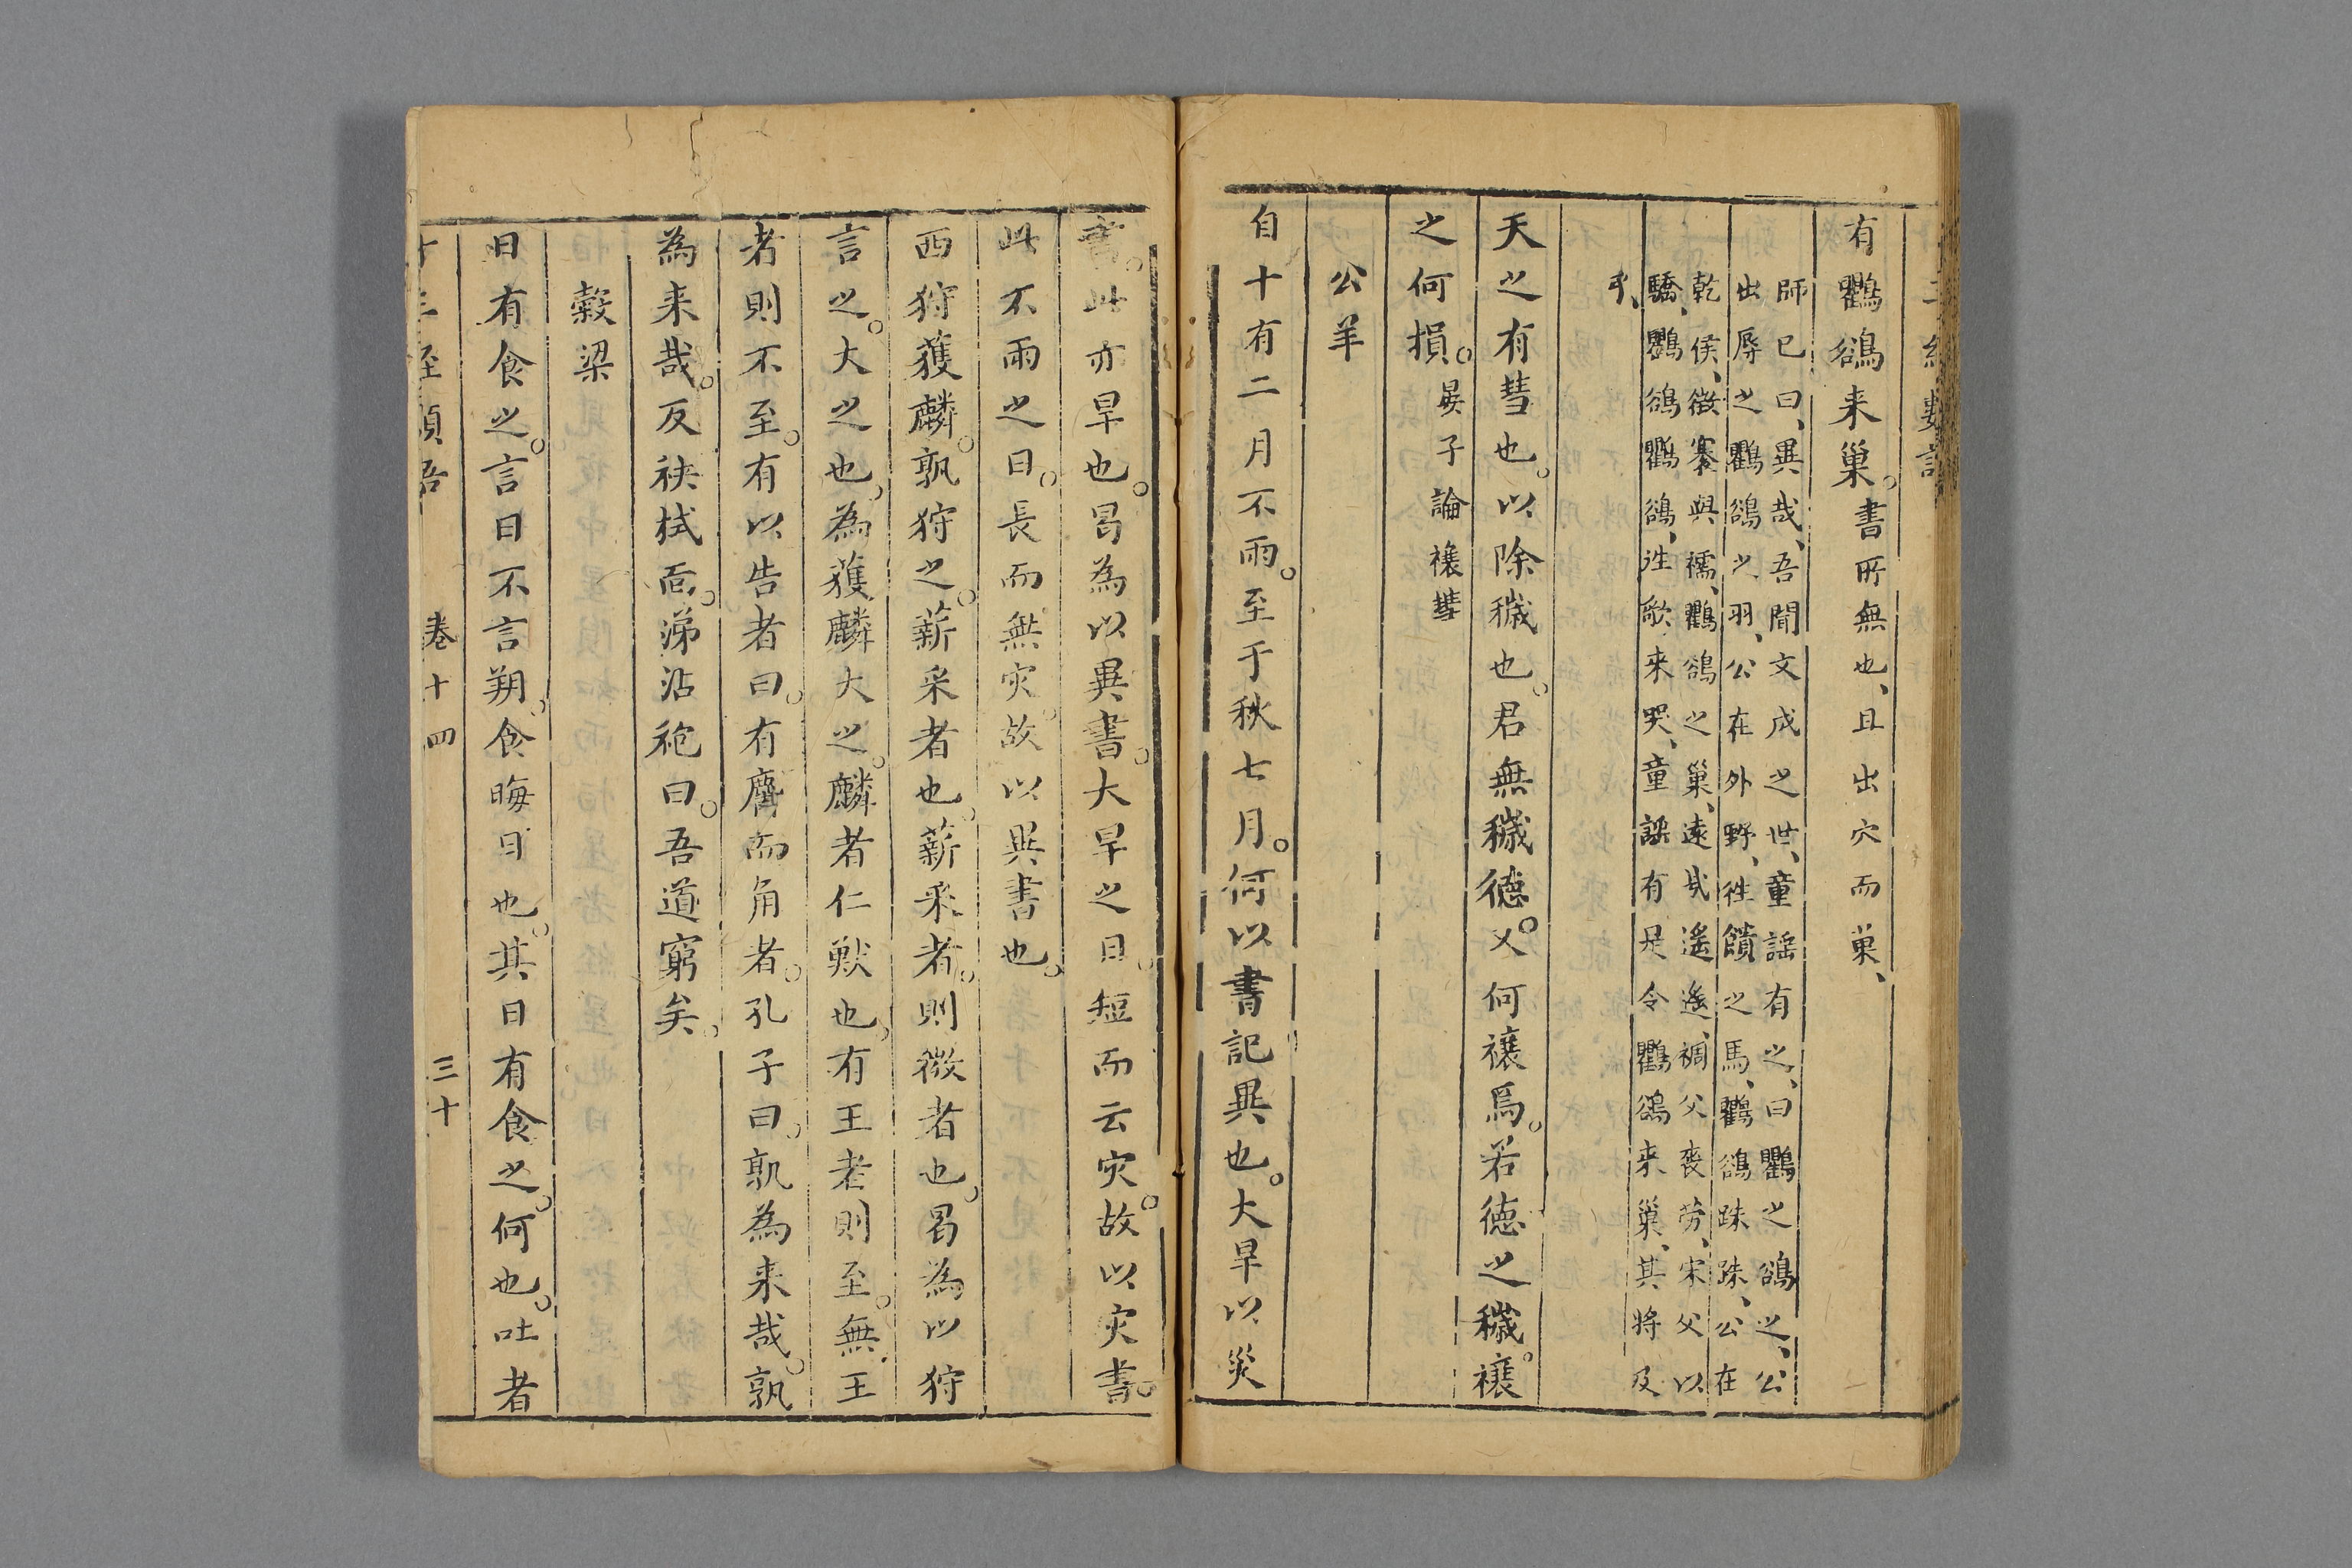 有鸜鵒来巢。書所無也、且出穴而巢、
師已曰、異哉、吾聞文成之世、童謡有之、曰鸜之鵒之、公
出辱之鸜鵒之羽、公在外野、徃饋之馬、鸜鵒跦跦、公在
乾侯、徴褰與襦、鸜鵒之巢、遠哉遥遥、裯父喪劳、宋父以
驕、鸜鵒鸜鵒、徃歌来哭、童謡有是、今鸜鵒来巢、其将及
乎、
天之有彗也。以除穢也。君無穢德。又何禳焉。若德之穢。禳
之何損。晏子論禳彗
公羊
自十有二月不雨。至于秋七月。何以書記異也。大旱以災
書。此亦旱也。曷為以異書。大旱之日。短而云灾。故以灾書。
此不雨之日。長而無灾。故以異書也。
西狩獲麟。孰狩之。薪采者也。薪采者。則微者也。曷為以狩
言之。大之也。為獲麟大之。麟者仁獸也。有王者則至。無王
者則不至。有以告者曰。有麏而角者。孔子曰。孰為来哉。孰
為来哉。反袂拭靣。涕沾袍曰。吾道窮矣。
穀梁
日有食之。言日不言朔。食晦日也。其日有食之。何也。吐者
卷十四
三十